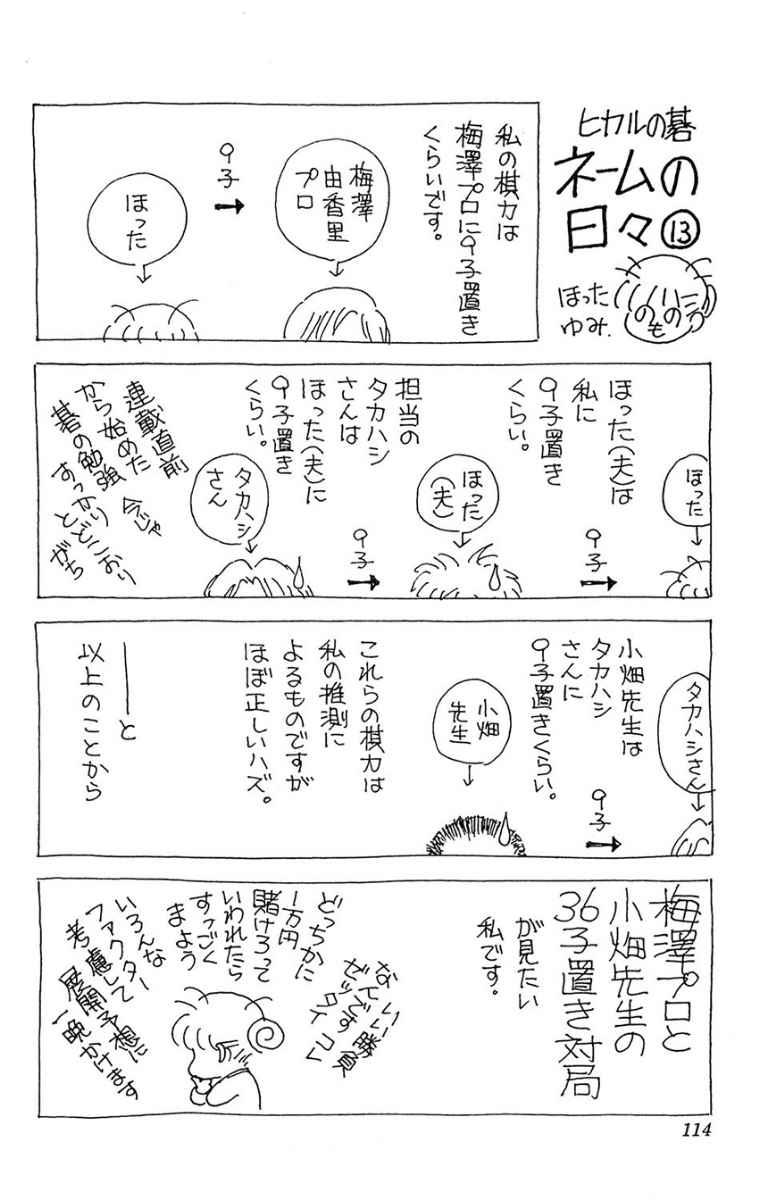 ヒカルの碁
ネームの
日々⑬
ほった
ゆみ.
私の棋力は
梅澤プロに9子置き
くらいです。
梅澤
由香里
プロ
9子
ほった
ほった
ほった(夫)は
私に
9子置き
くらい。
9子
ほった
(夫)
担当の
タカハシ
さんは
ほった(夫)に
9子置き
くらい。
9子
タカハシ
さん
連載直前
から始めた
碁の勉強 今じゃ
すっかり
とどこおり
がち
タカハシさん
小畑先生は
タカハシ
さんに
9子置きくらい。
9子
小畑
先生
これらの棋力は
私の推測に
よるものですが
ほぼ正しいハズ。
――と
以上のことから
梅澤プロと
小畑先生の
36子置き対局
が見たい
私です。
いい勝負
なんです コレ
ゼッタイ
どっちかに
1万円
賭けろって
いわれたら
すっごく
まよう
いろんな
ファクター
考慮して
展開予想に
一晩かけます
114